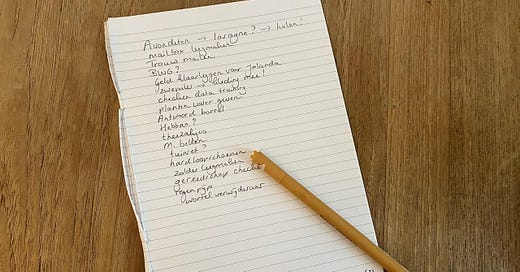 Avondeten → lasagne? → halen!
mailbox leegmaken
Trouw mailen
BWG?
Geld klaarleggen voor Jolanda
zwemles → kleding mee!
checken data training
planten water geven
Antwoord borrel
Hebban?
theezakjes
M. bellen
tuinvet?
hardloopschoenen
zolder leegmaken
gereedschap checken
regenpijp
wortel verwijderaar